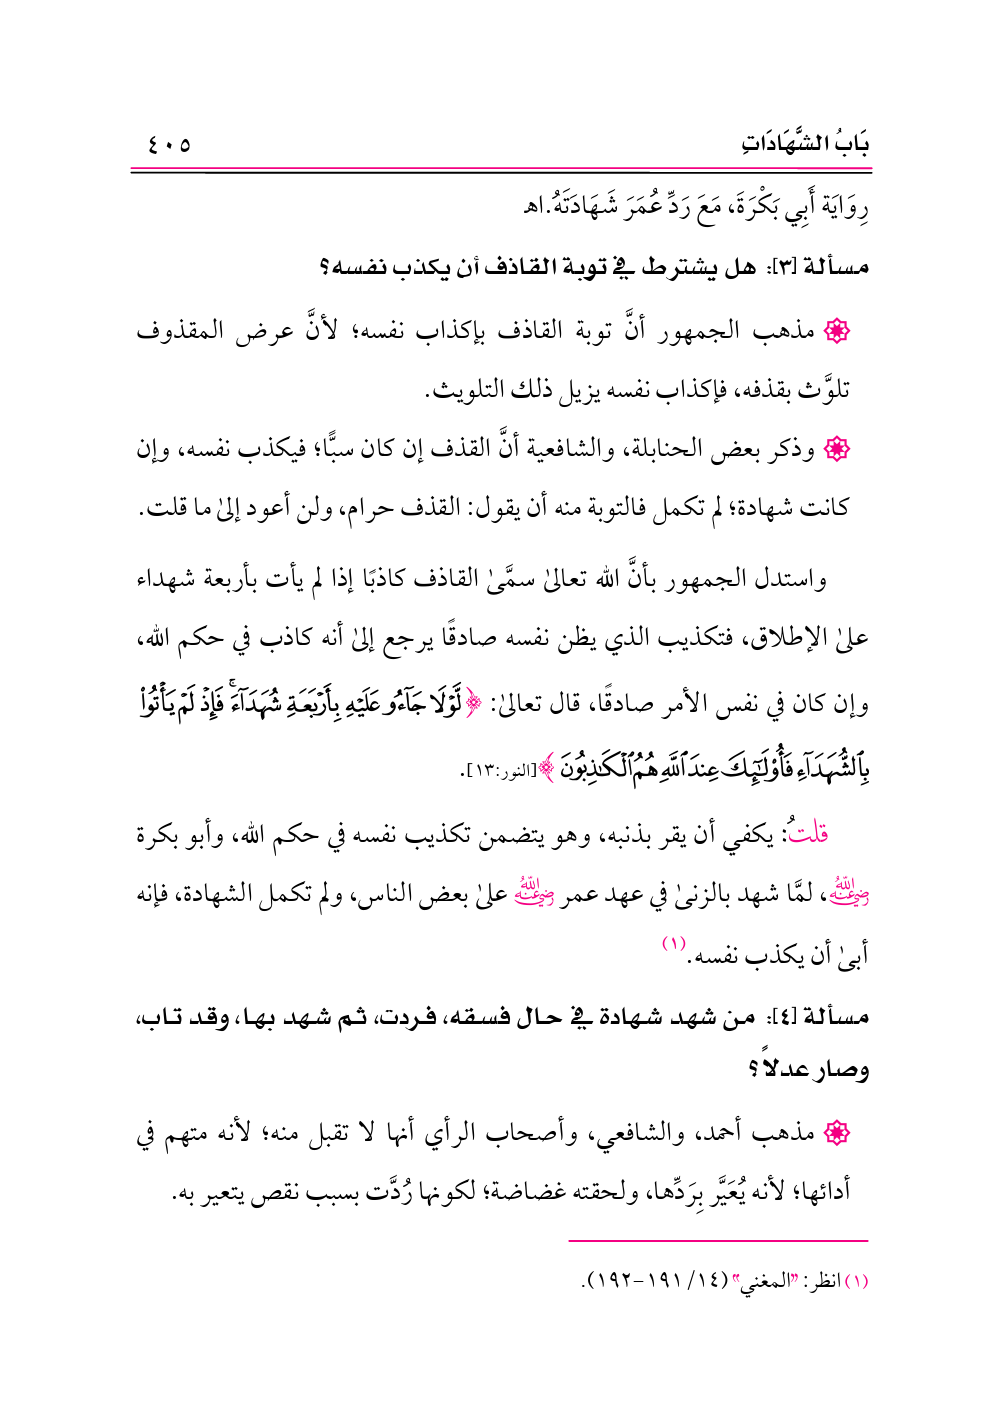 بَابُ الشَّهَادَاتِ ٤٠٥
رِوَايَة أَبِي بَكْرَةَ، مَعَ رَدِّ عُمَرَ شَهَادَتَهُ.اهـ
مسألة [٣]: هل يشترط في توبة القاذف أن يكذب نفسه؟
مذهب الجمهور أنَّ توبة القاذف بإكذاب نفسه؛ لأنَّ عرض المقذوف
تلوَّث بقذفه، فإكذاب نفسه يزيل ذلك التلويث.
وذكر بعض الحنابلة، والشافعية أنَّ القذف إن كان سبًّا؛ فيكذب نفسه، وإن
كانت شهادة؛ لم تكمل فالتوبة منه أن يقول: القذف حرام، ولن أعود إلىٰ ما قلت.
واستدل الجمهور بأنَّ الله تعالىٰ سمَّىٰ القاذف كاذبًا إذا لم يأت بأربعة شهداء
علىٰ الإطلاق، فتكذيب الذي يظن نفسه صادقًا يرجع إلىٰ أنه كاذب في حكم الله،
وإن كان في نفس الأمر صادقًا، قال تعالىٰ: ﴿لَّوْلَا جَآءُو عَلَيْهِ بِأَرْبَعَةِ شُهَدَآءَ ۚ فَإِذْ لَمْ يَأْتُوا۟
بِٱلشُّهَدَآءِ فَأُو۟لَـٰٓئِكَ عِندَ ٱللَّهِ هُمُ ٱلْكَـٰذِبُونَ﴾[النور:١٣].
قلتُ: يكفي أن يقر بذنبه، وهو يتضمن تكذيب نفسه في حكم الله، وأبو بكرة
رضي الله عنه، لمَّا شهد بالزنىٰ في عهد عمر رضي الله عنه علىٰ بعض الناس، ولم تكمل الشهادة، فإنه
أبىٰ أن يكذب نفسه.(١)
مسألة [٤]: من شهد شهادة في حال فسقه، فردت، ثم شهد بها، وقد تاب،
وصار عدلاً؟
مذهب أحمد، والشافعي، وأصحاب الرأي أنها لا تقبل منه؛ لأنه متهم في
أدائها؛ لأنه يُعَيَّر بِرَدِّها، ولحقته غضاضة؛ لكونها رُدَّت بسبب نقص يتعير به.
(١) انظر: "المغني" (١٤/ ١٩١-١٩٢).